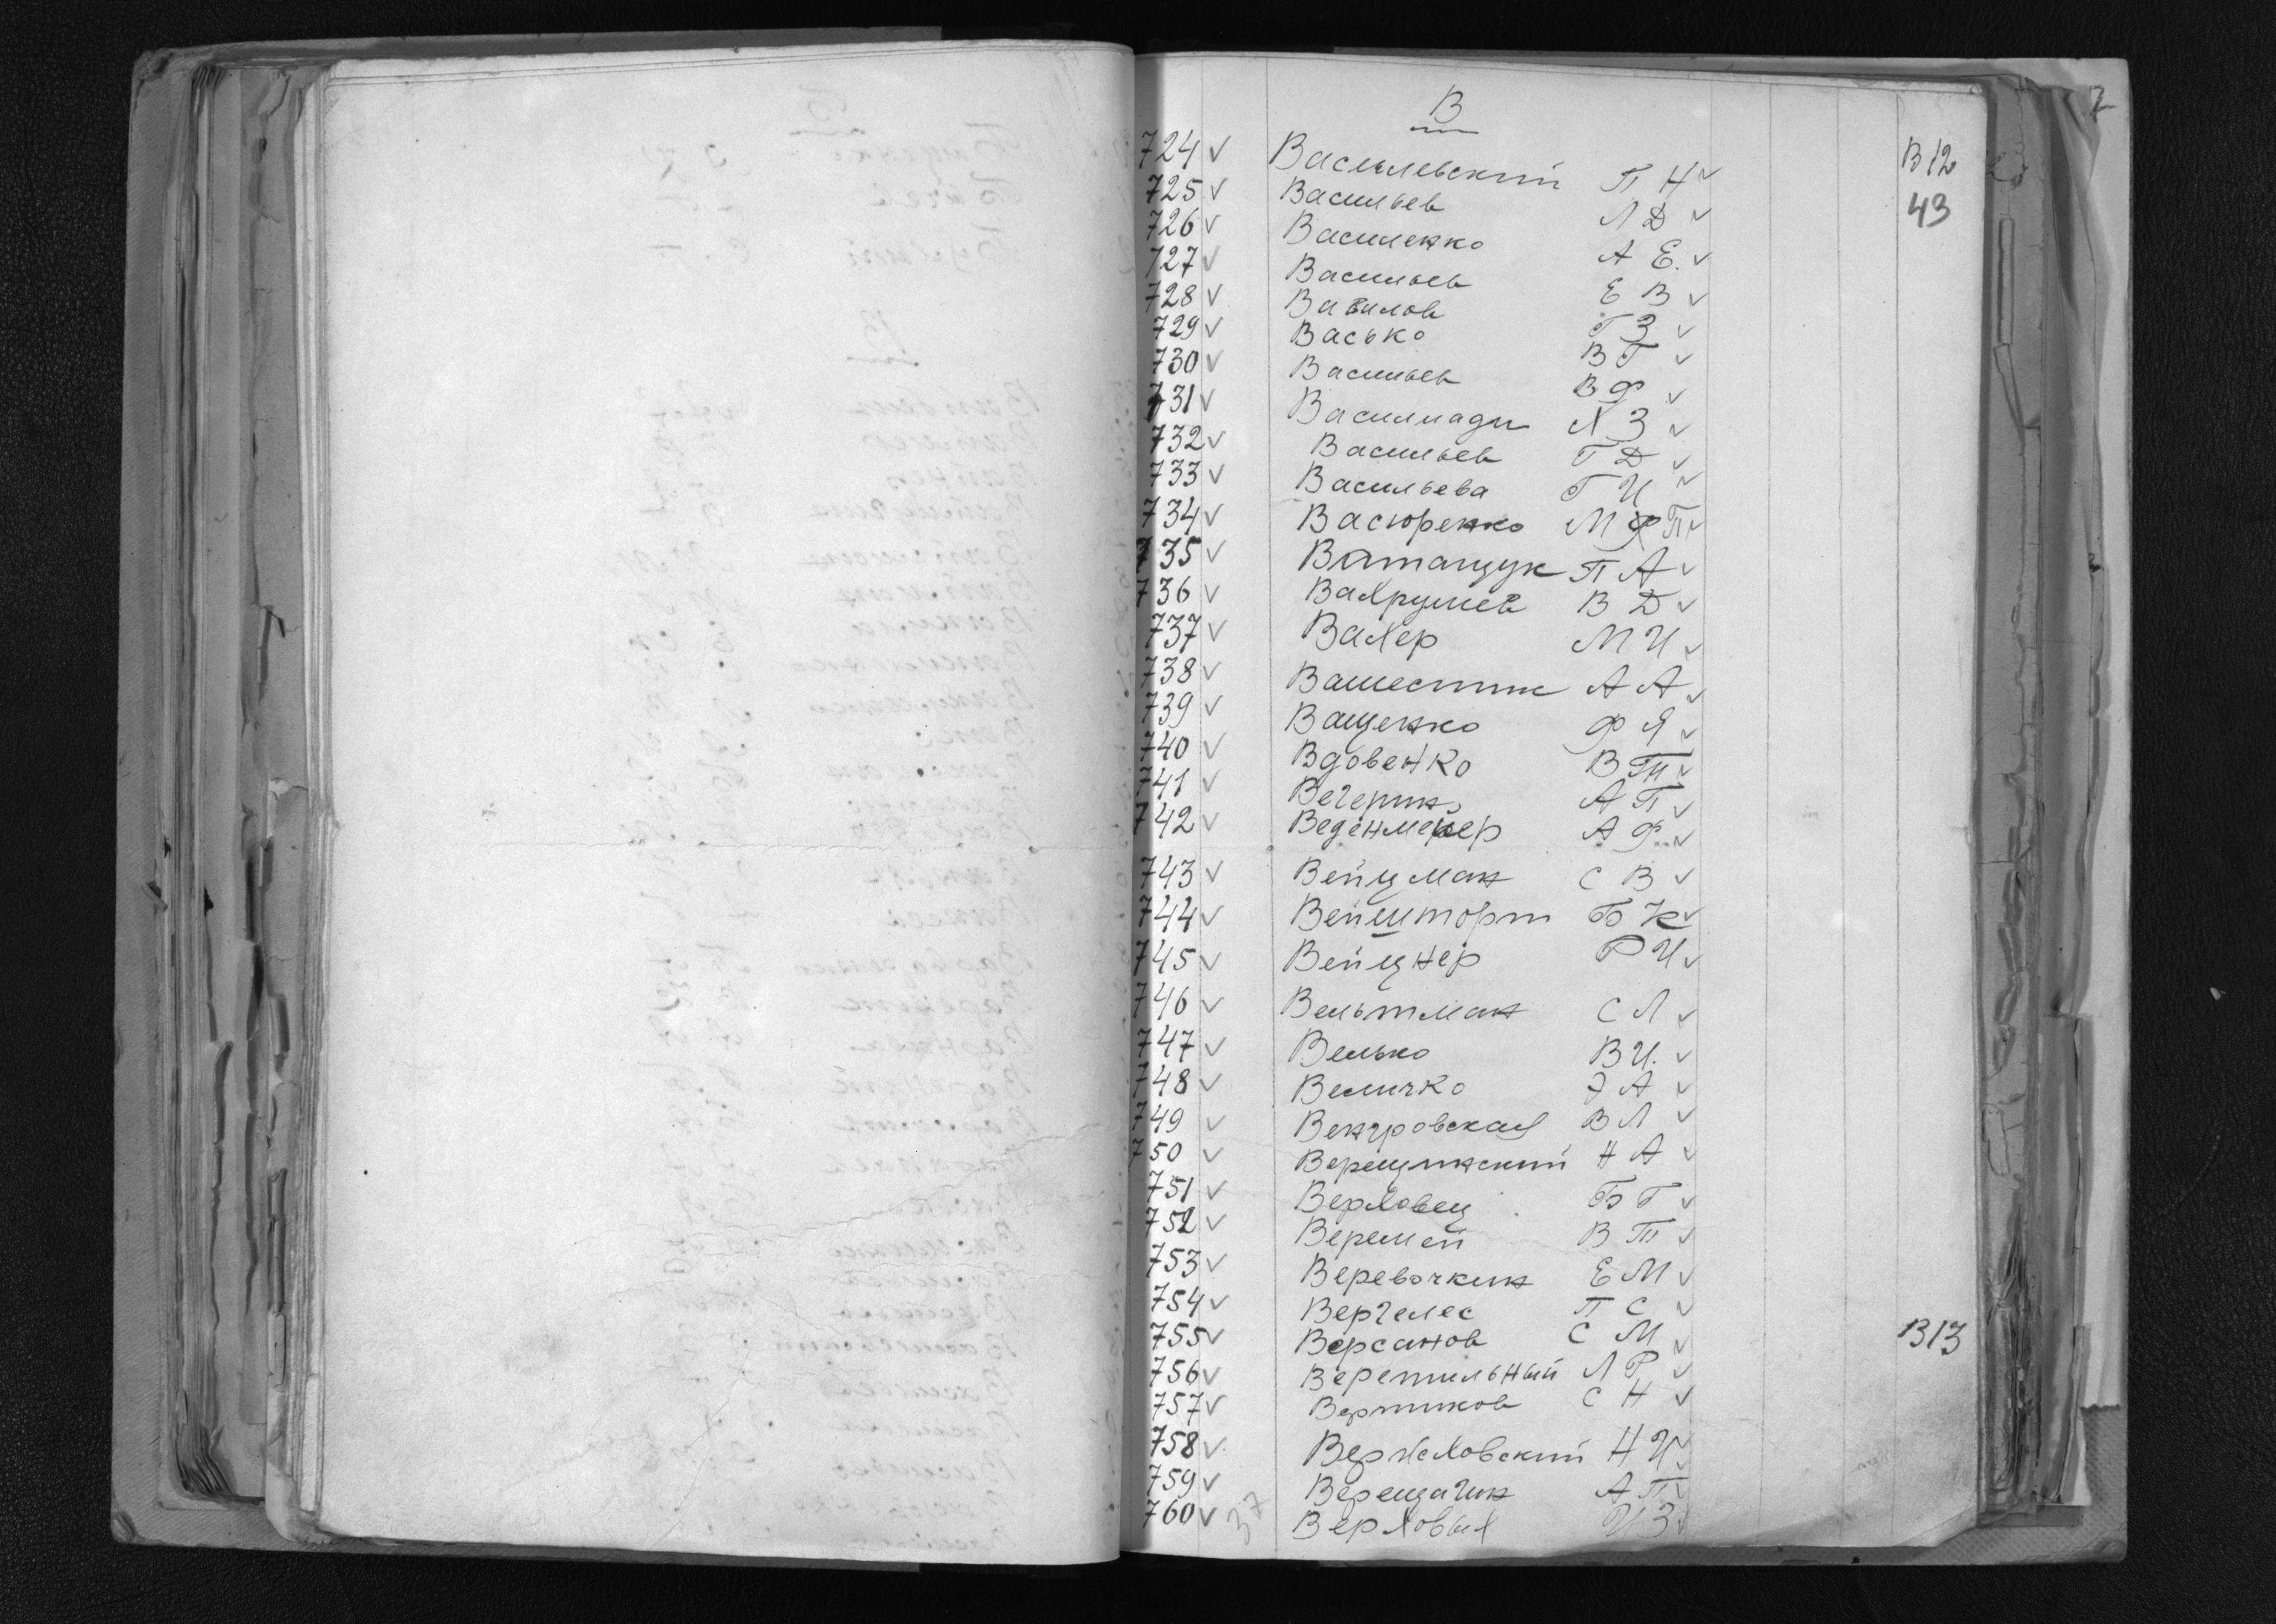 В
724 ✓ Василевский П Н ✓ В 12
725 ✓ Васильев Л Д ✓ 43
726 ✓ Василенко А Е. ✓
727 ✓ Васильев Е В ✓
728 ✓ Вавилов Г З ✓
729 ✓ Васько В Г ✓
730 ✓ Васильев В Ф ✓
731 ✓ Василиади Л З ✓
732 ✓ Васильев Г Д ✓
733 ✓ Васильева Г И ✓
734 ✓ Васюренко М П ✓
735 ✓ Ватащук П А ✓
736 ✓ Вахрушев В Д ✓
737 ✓ Вахер М И ✓
738 ✓ Вашестик А А ✓
739 ✓ Ващенко Ф Я ✓
740 ✓ Вдовенко В Т ✓
741 ✓ Вечерин А П ✓
742 ✓ Веденмейер А Ф. ✓
743 ✓ Вейцман С В ✓
744 ✓ Вейшторт Б К ✓
745 ✓ Вейцнер Р И ✓
746 ✓ Вельтман С Л ✓
747 ✓ Велько В И. ✓
748 ✓ Величко Э А ✓
749 ✓ Венгровская В Л ✓
750 ✓ Верещинский Н А ✓
751 ✓ Верховец Б Г ✓
752 ✓ Веремей В Т ✓
753 ✓ Веревочкин Е М ✓
754 ✓ Вергелес П С ✓
755 ✓ Версанов С М ✓ В 13
756 ✓ Веретильный Л Р ✓
757 ✓ Вертиков С Н ✓
758 ✓ Вержховский Н И ✓
759 ✓ Верещагин А П ✓
760 ✓ 37 Верховых И З ✓